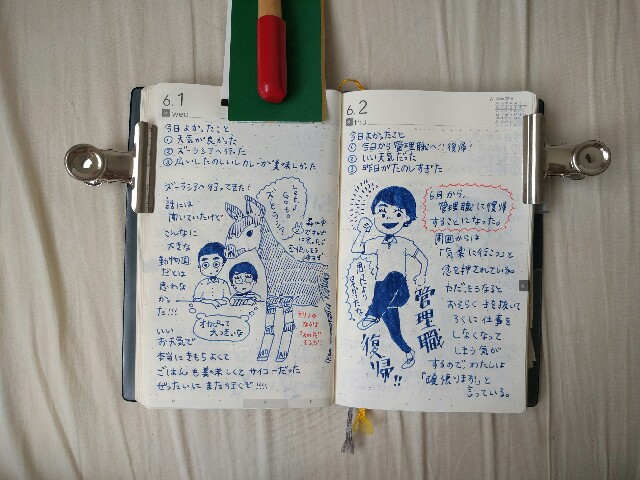 6.1
wed
今日よかったこと
① 天気が良かった
② ズーラシアへ行った
③ 広いしたのしいしカレーが美味しかった
ズーラシアへ行ってきた!
話には
聞いていたけど
こんなに
大きな
動物園
だとは
思わな
かっ
た!!!
いい
お天気で
本当にきもちよくて
ごはんも美味しくてサイコーだった
ぜったいにまた行くぞ!!!!
6.2
今日よかったこと
① 今日から管理職へ!!復帰!
② いい天気だった
③ 昨日がたのしすぎた
6月から
管理職に復帰
することになった。
周囲からは
「気楽に行こう」と
念を押されている。
ただ、そうなると
おそらく手を抜いて
ろくに仕事を
しなくなって
しまう気が
するので、わたしは
「頑張ります」と
言っている。
管理職
復帰!!